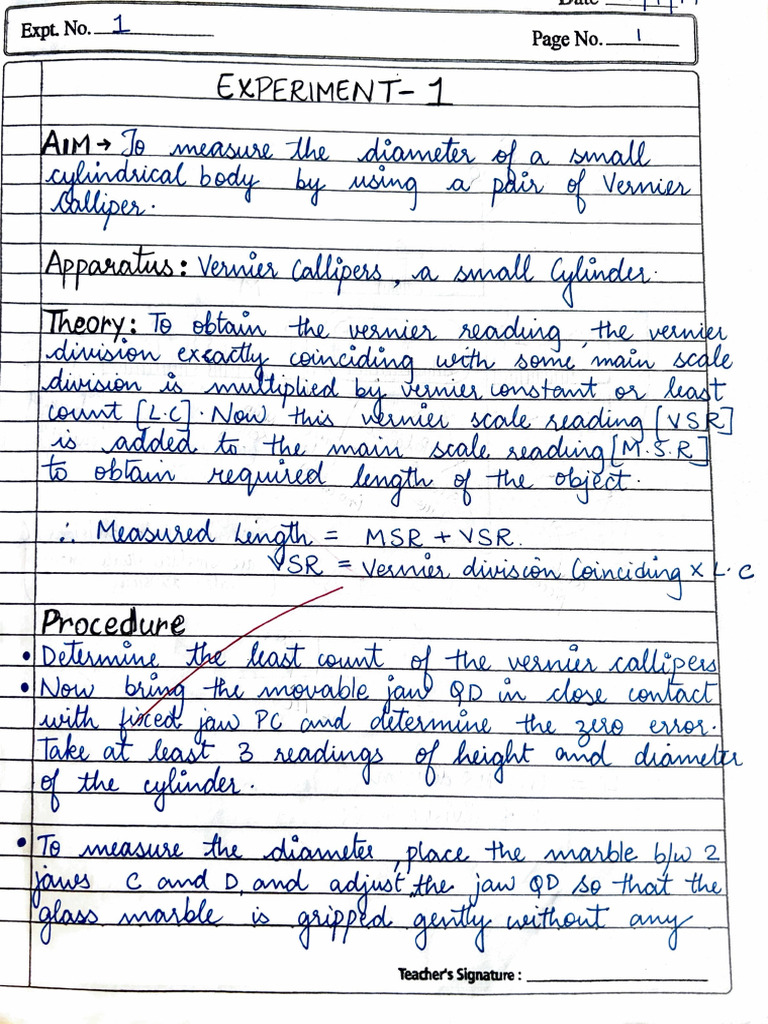 Expt. No. 1
Page No. 1
EXPERIMENT-1
AIM → To measure the diameter of a small
cylindrical body by using a pair of Vernier
Calliper.
Apparatus: Vernier Callipers, a small Cylinder.
Theory: To obtain the vernier reading, the vernier
division exactly coinciding with some main scale
division is multiplied by vernier constant or least
count [L.C]. Now this vernier scale reading [VSR]
is added to the main scale reading [M.S.R]
to obtain required length of the object.
∴ Measured Length = MSR + VSR.
VSR = Vernier division Coinciding × L.C
Procedure
• Determine the least count of the vernier callipers
• Now bring the movable jaw QD in close contact
with fixed jaw PC and determine the zero error.
Take at least 3 readings of height and diameter
of the cylinder.
• To measure the diameter, place the marble b/w 2
jaws C and D, and adjust the jaw QD so that the
glass marble is gripped gently without any
Teacher's Signature :